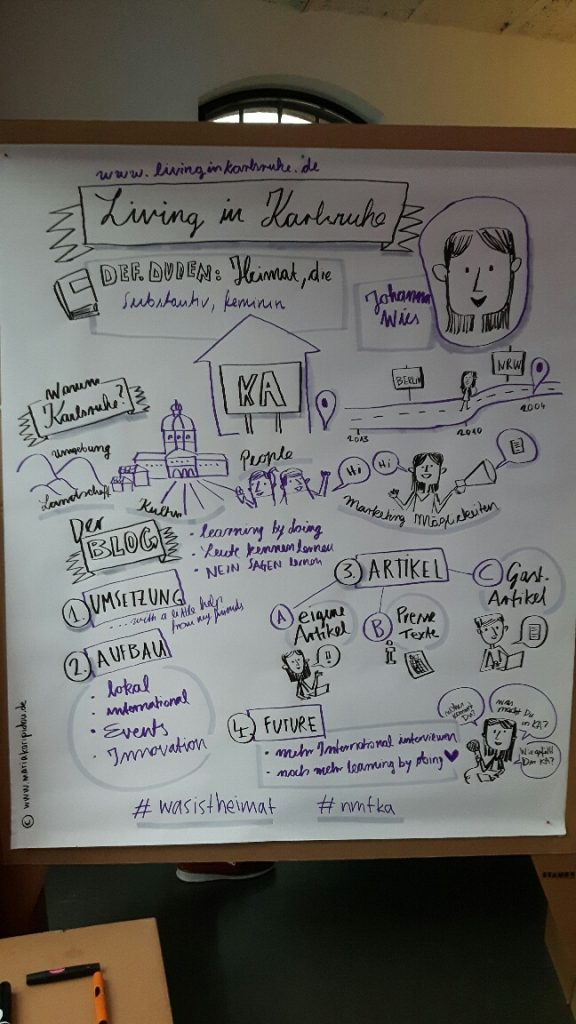 www.livinginkarlsruhe.de
Living in Karlsruhe
DEF. DUDEN: Heimat, die
Substantiv, feminin
Johanna
Wies
Warum
Karlsruhe?
KA
BERLIN
NRW
2013
2010
2004
Umgebung
Landschaft
Kultur
People
Hi
Hi
Marketing Möglichkeiten
Der
BLOG
• learning by doing
• Leute kennenlernen
• NEIN SAGEN lernen
1. UMSETZUNG
...with a little help
from my friends
2. AUFBAU
• lokal
• international
• Events
• Innovation
3. ARTIKEL
A eigene
Artikel
!!
B Presse
Texte
C Gast-
Artikel
4. FUTURE
• mehr International interviewen
• noch mehr learning by doing
woher
kommst
Du?
was
macht Du
in KA?
Wie gefällt
Dir KA?
#wasistheimat #nmfka
© www.mariakaripidou.de